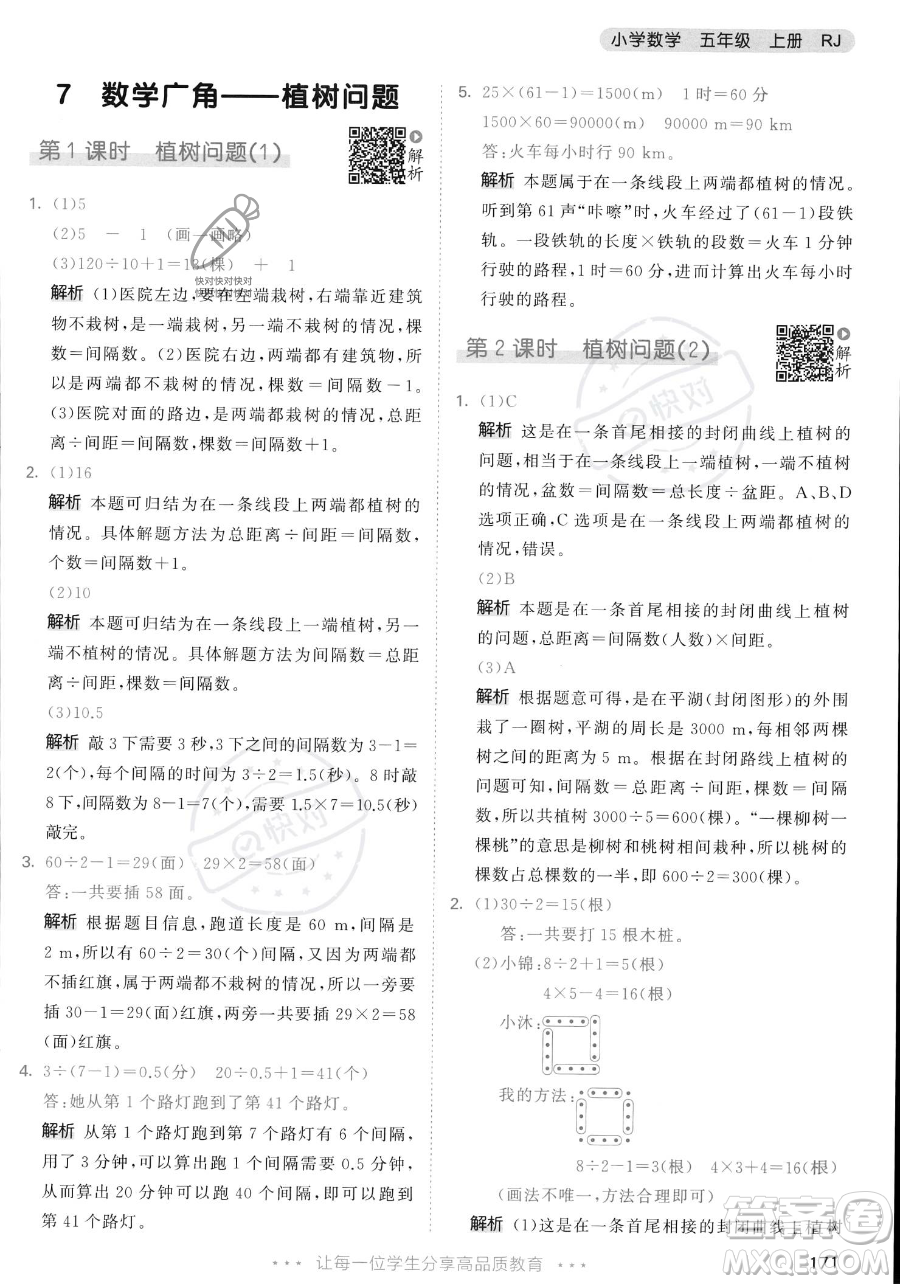 小学数学 五年级 上册 RJ
7 数学广角——植树问题
第1课时 植树问题(1)
解析
1. (1)5
(2)5 - 1 (画一画略)
(3)120÷10+1=13(棵) + 1
快对快对快对
快对快对快对
解析 (1)医院左边,要在左端栽树,右端靠近建筑
物不栽树,是一端栽树、一端不栽树的情况,棵
数=间隔数。(2)医院右边,两端都有建筑物,所
以是两端都不栽树的情况,棵数=间隔数-1。
(3)医院对面的路边,两端都栽树的情况,总距
离÷间距=间隔数,棵数=间隔数+1。
2. (1)16
解析 本题可归结为在一条线段上两端都植树的
情况。具体解题方法为总距离÷间距=间隔数,
个数=间隔数+1。
(2)10
解析 本题可归结为在一条线段上一端植树、另
一端不植树的情况。具体解题方法为总距
离÷间距=间隔数,棵数=间隔数。
(3)10.5
解析 敲3下需要3秒,3下之间的间隔数为3-1=
2(个),每个间隔的时间为3÷2=1.5(秒)。8时敲
8下,间隔数为8-1=7(个),需要1.5×7=10.5(秒)
敲完。
3. 60÷2-1=29(面) 29×2=58(面)
答:一共要插58面。
解析 根据题目信息,跑道长度是60 m,间隔是
2 m,所以有60÷2=30(个)间隔,又因为两端都
不插红旗,属于两端都不栽树的情况,所以一旁有
30-1=29(面)红旗,两旁一共有29×2=58
(面)红旗。
4. 3÷(7-1)=0.5(分) 20÷0.5+1=41(个)
答:她从第1个路灯跑到了第41个路灯。
解析 从第1个路灯跑到第7个路灯有6个间隔,
用了3分钟,可以算出跑一个间隔需要0.5分钟,
从而算出20分钟可以跑40个间隔,所以跑到了
第41个路灯。
5. 25×(61-1)=1500(m) 1时=60分
1500×60=90000(m) 90000 m=90 km
答:火车每小时行90 km。
解析 本题属于在一条线段上两端都植树的情况。
听到第61声“咔嚓”时,火车走了(61-1)段铁
轨。一段铁轨的长度×铁轨的段数=火车1分钟
行驶的路程,进而计算出火车每小时
行驶的路程。
第2课时 植树问题(2)
解析
1. (1)C
解析 这是在一条首尾相接的封闭曲线上植树的
问题,相当于在一条线段上一端植树,一端不植树
的情况,盆数=间隔数=总长度÷盆距。A、B、D
选项正确,C选项是在一条线段上两端都植树的
情况,错误。
(2)B
解析 本题是在一条首尾相接的封闭曲线上植树
的问题,总距离=间隔数(人数)×间距。
(3)A
解析 根据题意可得,是在平湖(封闭图形)的外围
栽了一圈树,平湖的周长是3000 m,每相邻两棵
树之间的距离是5 m。根据在封闭路线上植树的
问题可知,间隔数=总距离÷间距,棵数=间隔
数,所以共植树3000÷5=600(棵)。“一棵柳树一
一棵桃”的意思是柳树和桃树间隔种植,所以桃树
的棵数是总棵数的一半,即600÷2=300(棵)。
2. (1)30÷2=15(根)
答:一共要打15根木桩。
(2)小锦:8÷2+1=5(根)
4×5-4=16(根)
小沐:
我的方法:
8÷2-1=3(根) 4×3+4=16(根)
(画法不唯一,方法合理即可)
解析 (1)这是在一条首尾相接的封闭曲线上植树
让每一位学生分享高品质教育
171
快对
快对
答案圈